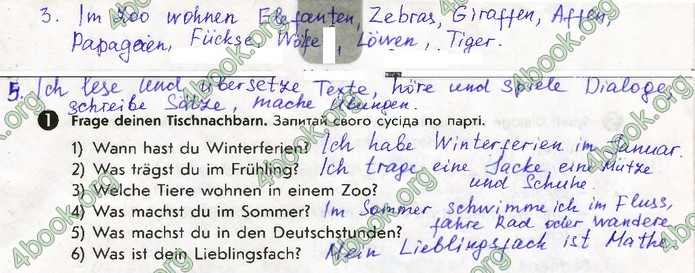 3. Im Zoo wohnen Elefanten, Zebras, Giraffen, Affen,
Papageien, Füchse, Wölfe, Löwen, Tiger.
5. Ich lese und übersetze Texte, höre und spiele Dialoge,
schreibe Sätze, mache Übungen.
1 Frage deinen Tischnachbarn. Запитай свого сусіда по парті.
1) Wann hast du Winterferien? Ich habe Winterferien im Januar.
2) Was trägst du im Frühling? Ich trage eine Jacke, eine Mütze
und Schuhe.
3) Welche Tiere wohnen in einem Zoo?
4) Was machst du im Sommer? Im Sommer schwimme ich im Fluss,
fahre Rad oder wandere.
5) Was machst du in den Deutschstunden?
6) Was ist dein Lieblingsfach? Mein Lieblingsfach ist Mathe.
4book.org